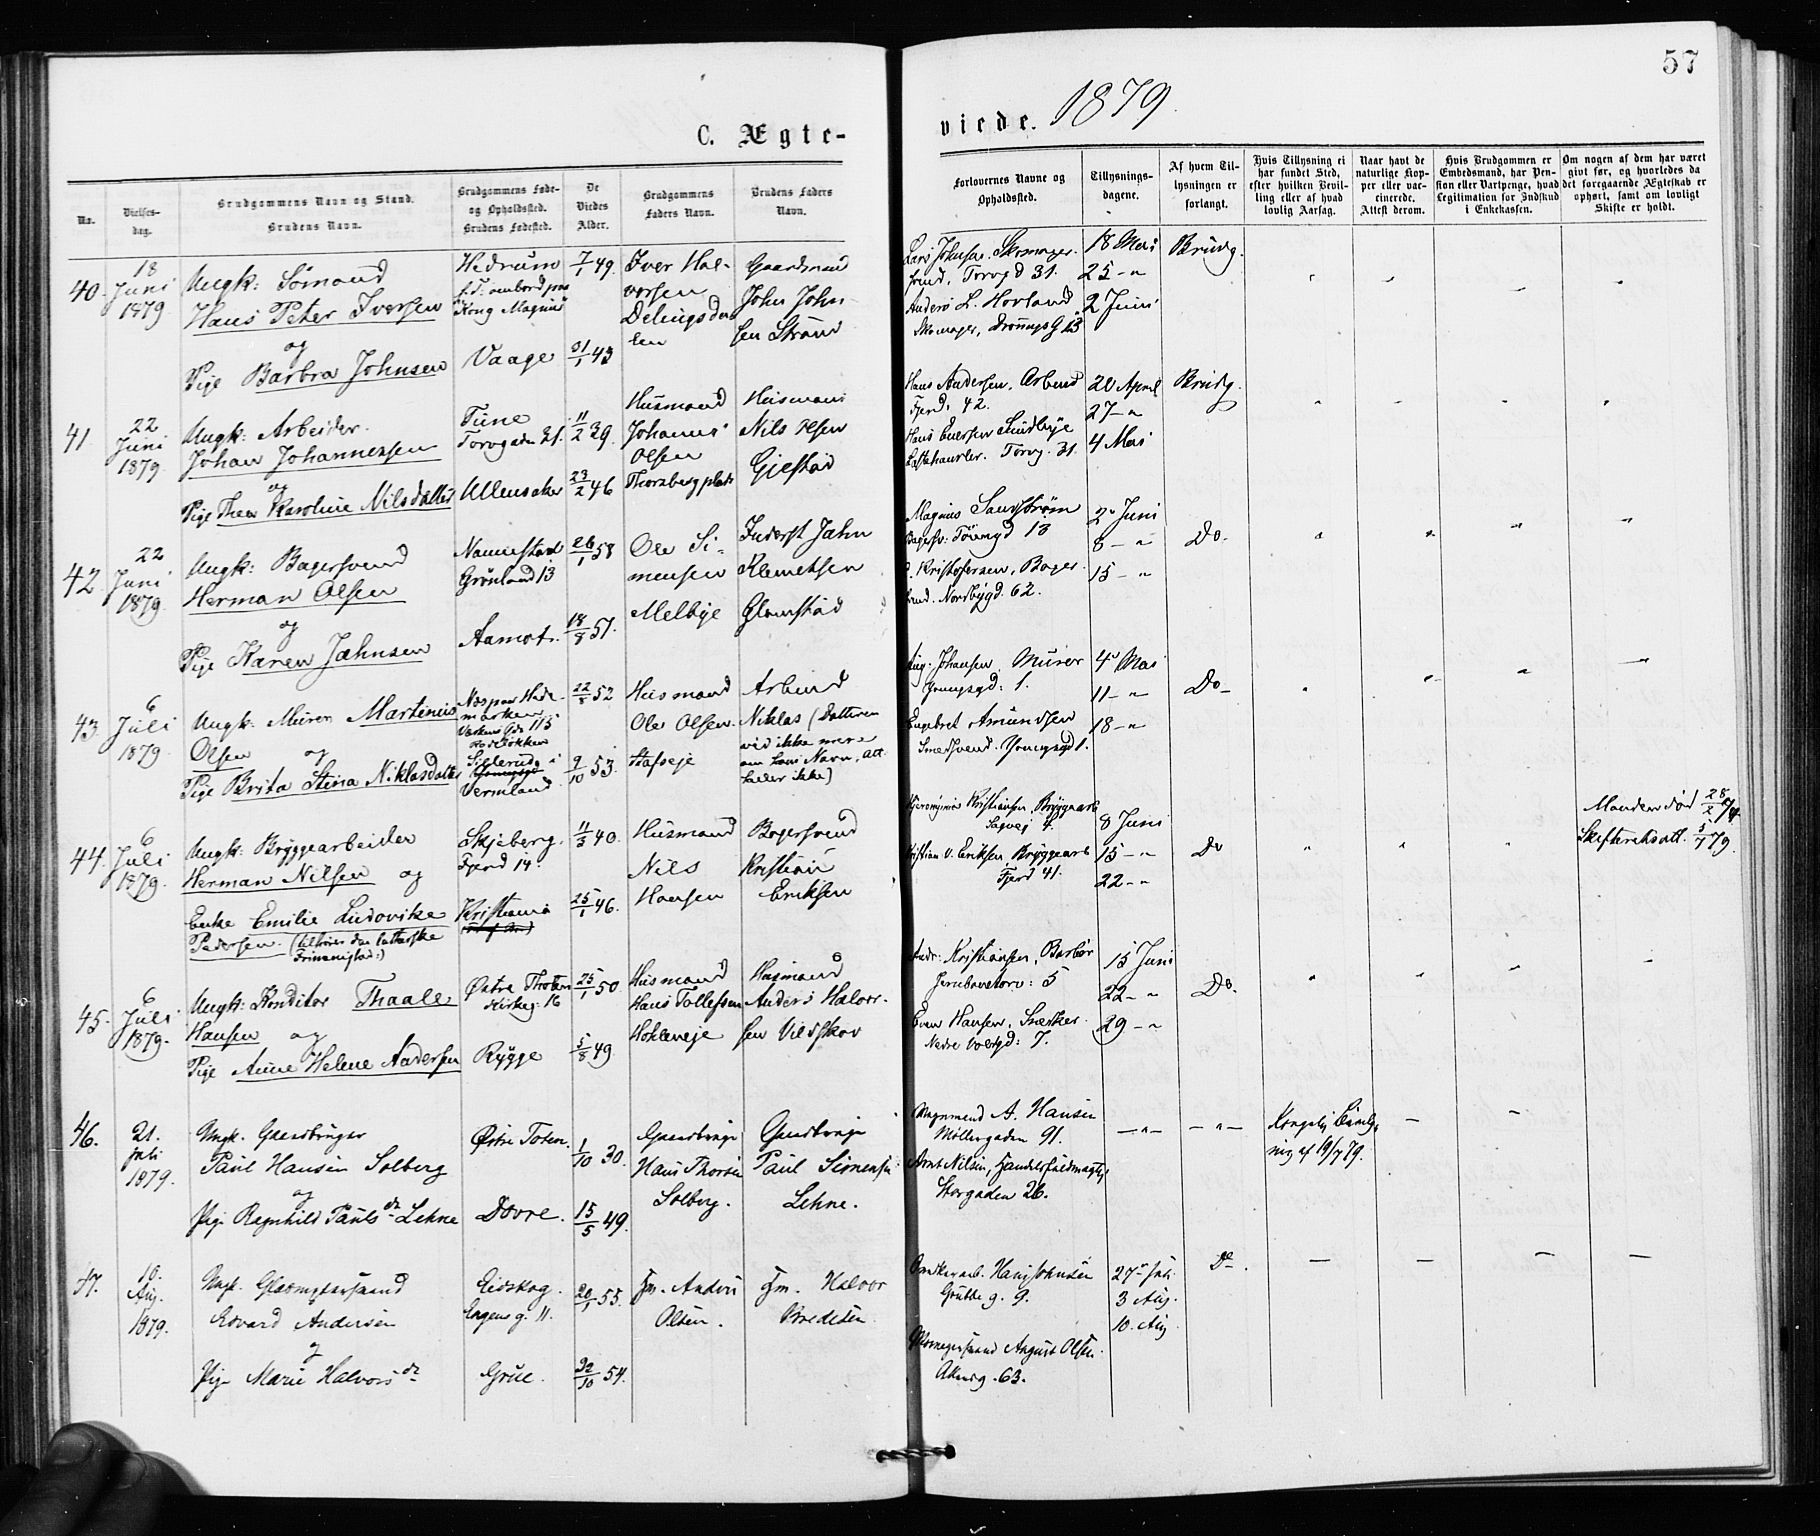 57
C. Ægte-
viede. 1879.
No.
Vielses-
dag.
Brudgommens Navn og Stand.
Brudens Navn.
Brudgommens Føde-
og Opholdssted.
Brudens Fødested.
De
Viedes
Alder.
Brudgommens
Faders Navn.
Brudens Faders
Navn.
Forlovernes Navne og
Opholdssted.
Tillysnings-
dagene.
Af hvem Til-
lysningen er
forlangt.
Hvis Tillysning ei
har fundet Sted,
efter hvilken Bevil-
ling eller af hvad
lovlig Aarsag.
Naar havt de
naturlige Kop-
per eller vac-
cinerede.
Attest derom.
Hvis Brudgommen er
Embedsmand, har Pen-
sion eller Vartpenge, hvad
Legitimation for Indskud
i Enkekassen.
Om nogen af dem har været
givt før, og hvorledes da
det foregaaende Ægteskab er
ophørt, samt om lovligt
Skifte er holdt.
40. 18 Juni 1879
Ungk: Sømand
Hans Peter Iversen
og
Pige Barbra Johnsen
Hedrum
f. T. ombord paa
"Kong Magnus"
Vaage
7/1 49.
31/1 43
Iver Hal-
vorsen
Delingsda-
len
Gaardmand
John John
sen Strand
Lars Johnsen, Skomager-
svend, Torvgd 31.
Anders L. Hovland
Skomager, Dronnings G 13
18 Mai
25 - "
2 Juni
Brudg.
41 22 Juni 1879
Ungk: Arbeider.
Johan Johannessen
og
Pige Thea Karoline Nilsdatter
Tune
Torvgaden 31.
Ullensaker
11/2 39.
23/2 46
Husmand
Johannes
Olsen
Thorsbergplads
Husmand
Nils Olsen
Gjestad
Hans Andersen, Arbmd
Fjerd. 42.
Hans Evensen Lundbye
Torvg. 31.
20 April
27 - "
4 Mai
Brudg.
42 22 Juni 1879
Ungk: Bagersvend
Herman Olsen
og
Pige Karen Jahnsen
Nannestad
Grønland 13
Aamot.
26/1 58
18/8 57.
Ole Si-
mensen
Melbye
Inderst Jahn
Klemetsen
Glomstad
Magnus Sandstrøm
Bagersv: 13
Kristofersen, Bager
svend. Nordbygd. 62.
2 Juni
8 - "
15 - "
Do.
43 6 Juli 1879
Ungk. Murer Martinius
Olsen og
Pige Brita Stina Niklasdatter
Næs paa Hede-
marken
Silleruds i
Vermland
22/8 52
9/10 53.
Husmand
Ole Olsen
Stafseje
Arbmd
Niklas (Datteren
ved ikke mere
om hans Navn, Att.
heller ikke)
Aug. Johansen, Murer
Youngsgd: 1.
Engebret Amundsen
Smedsvend. Youngsgd 1.
4 Mai
11 - "
18 - "
Do -
44. 6 Juli 1879.
Ungk: Bryggearbeider
Herman Nilsen og
Enke Emilie Ludovike
Pedersen. (tilhører den lutherske
Frimenighed:)
Skjeberg.
Fjerd 14.
Kristiania
11/3 40.
25/1 46.
Husmand
Nils
Hansen
Bagersvend
Kristian
Eriksen
Hieronymus Kristiansen, Bryggearb
Sagvej 4.
Kristian V. Eriksen, Bryggearb
Fjerd 41.
8 Juni
15 - "
22 - "
Do
Manden død 28/2 74.
Skifteretsatt. 5/7 79.
45. 6 Juli 1879.
Ungk: Konditor Thaale
Hansen og
Pige Anne Helene Andersen
Østre Thoten
Kirkeg: 16
Rygge
25/1 50.
5/8 49
Husmand
Hans Tollefsen
Hokleneje
Husmand
Anders Halvor-
sen Vildskov
Andr: Kristiansen, Barbør
Jernbanetorv: 5
Even Hansen, Snedker
Nedre Voldgd: 7.
15 Juni
22 - "
29 - "
Do.
46. 21. Juli 1879.
Ungk. Gaardbruger
Paul Hansen Solberg
og
Pige Ragnhild Paulsdr Lehne
Østre Toten.
Dovre.
1/10 30.
15/5 49.
Gaardbruger
Hans Thorsen
Solberg.
Gaardbruger
Paul Simensen
Lehne.
Vognmand A. Hansen
Møllergaden 91.
Arnt Nilsen, Handelsfuldmægtig
Storgaden 26.
- " -
- " -
Kongelig Bevilg-
ning af 19/7 79.
47. 10. Aug. 1879.
Ungk. Glasmestersvend
Edvard Andersen
og
Pige Marie Halvorsdr
Eidskog.
Engens g. 11.
Grue.
20/1 55.
22/10 54.
Hm. Anders
Olsen.
Hm. Halvor
Bredesen
Hans Johnsen
Grubbe g. 9.
August Olsen.
Akersg. 63.
27 Juli
3 Aug.
10. Aug
Do.